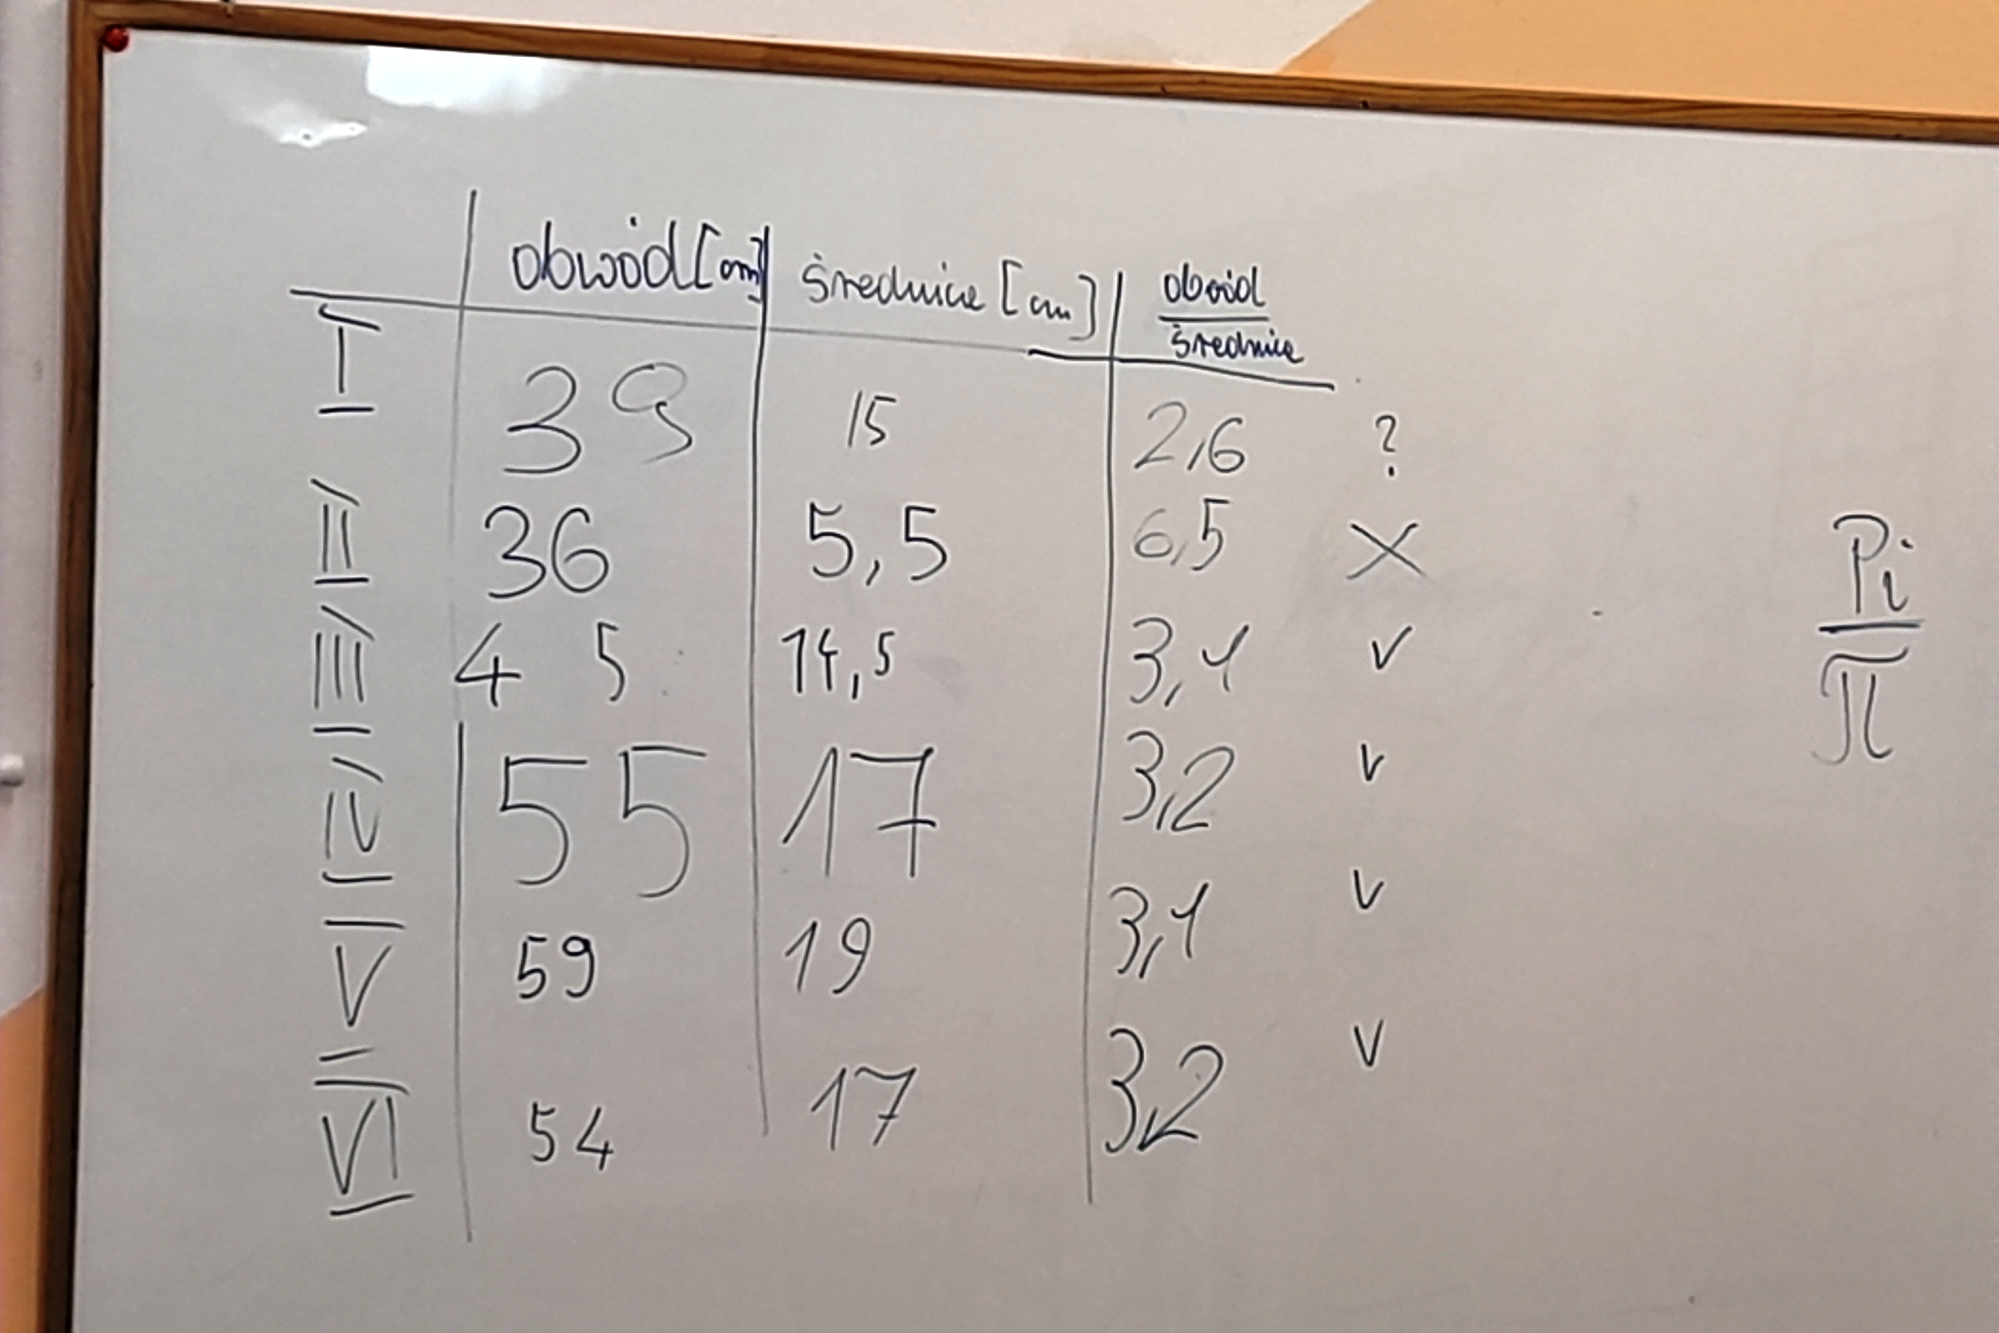 obwód [cm] średnica [cm] obwód
średnica
I 39 15 2,6 ?
II 36 5,5 6,5 X
III 45 14,5 3,1 v
IV 55 17 3,2 v
V 59 19 3,1 v
VI 54 17 3,2 v
Pi
π